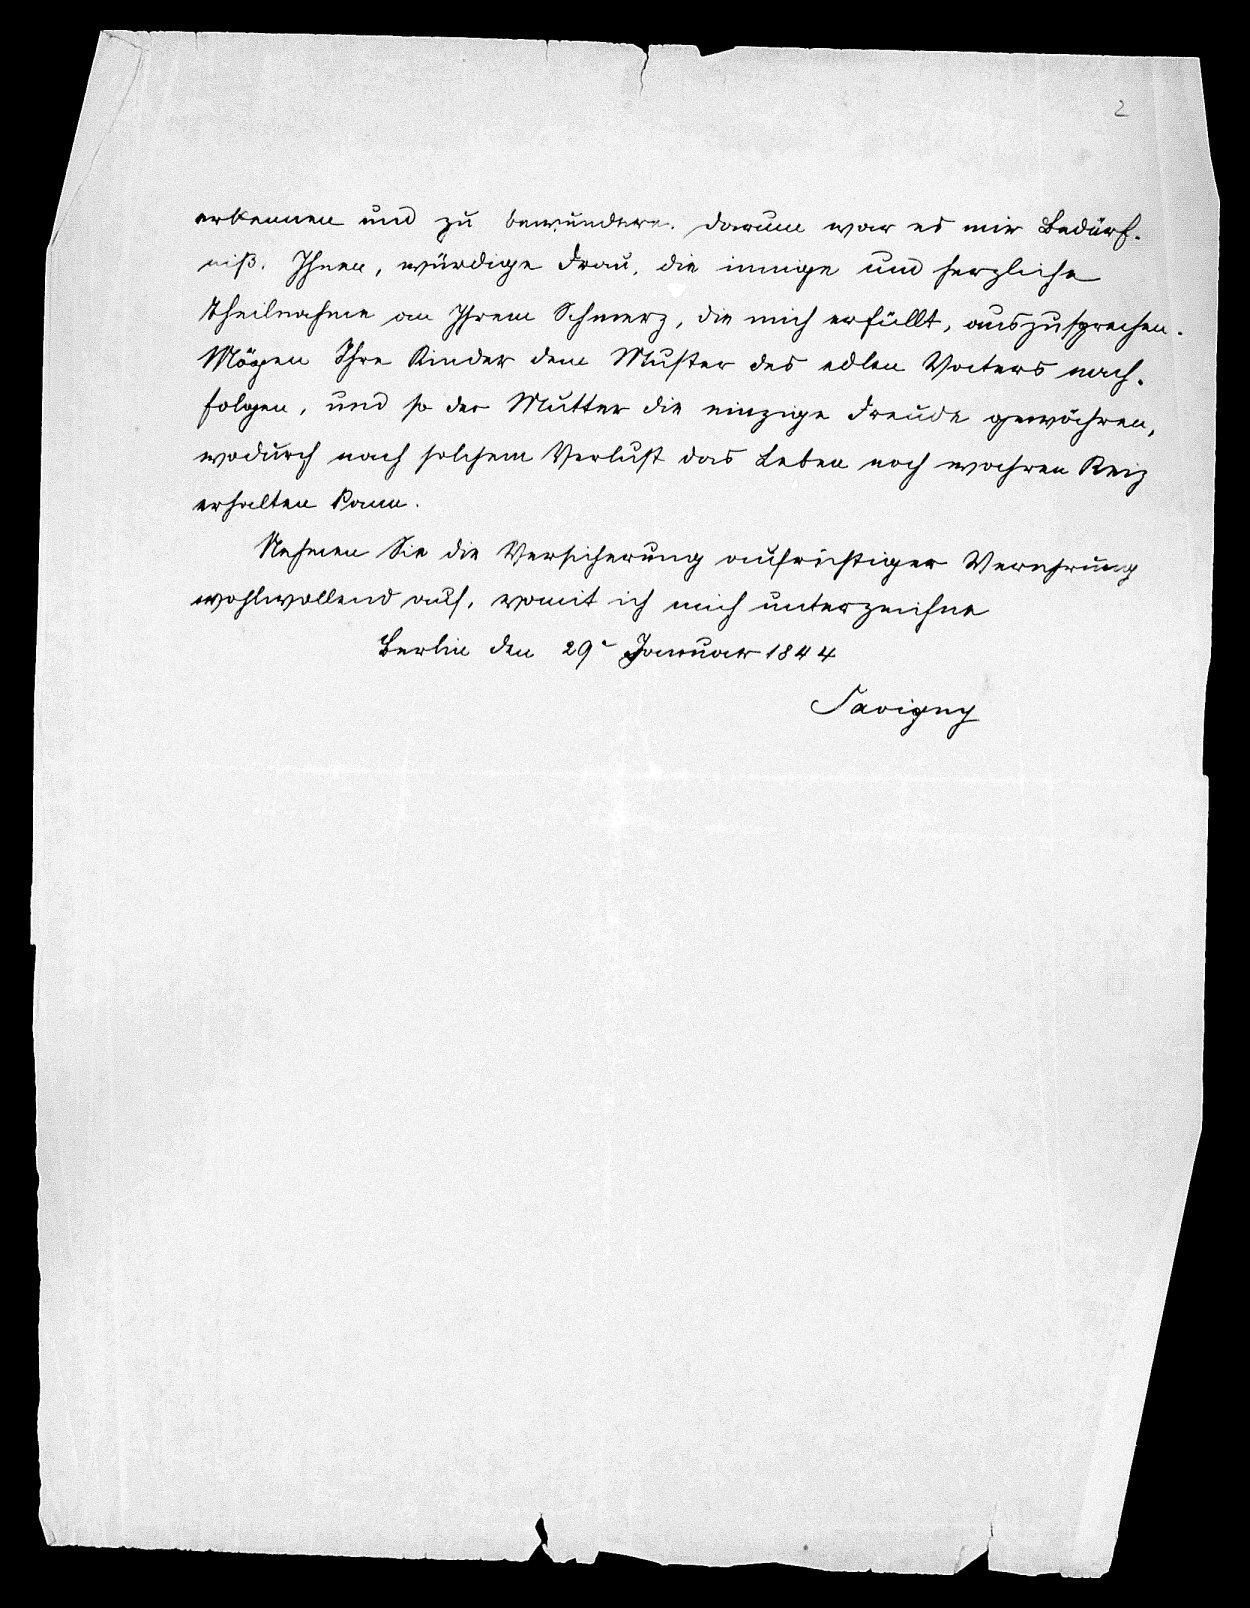 2
erkennen und zu bewundern. Darum war es mir Bedürf-
niß. Ihnen, würdige Frau, die innige und herzliche
Theilnahme an Ihrem Schmerz, die mich erfüllt, auszusprechen.
Mögen Ihre Kinder dem Muster des edlen Vaters nach-
folgen, und so der Mutter die einzige Freude gewähren,
wodurch nach solchem Verlust das Leben noch wahren Reiz
erhalten kann.
Nehmen Sie die Versicherung aufrichtiger Verehrung
wohlwollend auf, womit ich mich unterzeichne
Berlin den 29n Januar 1844
Savigny